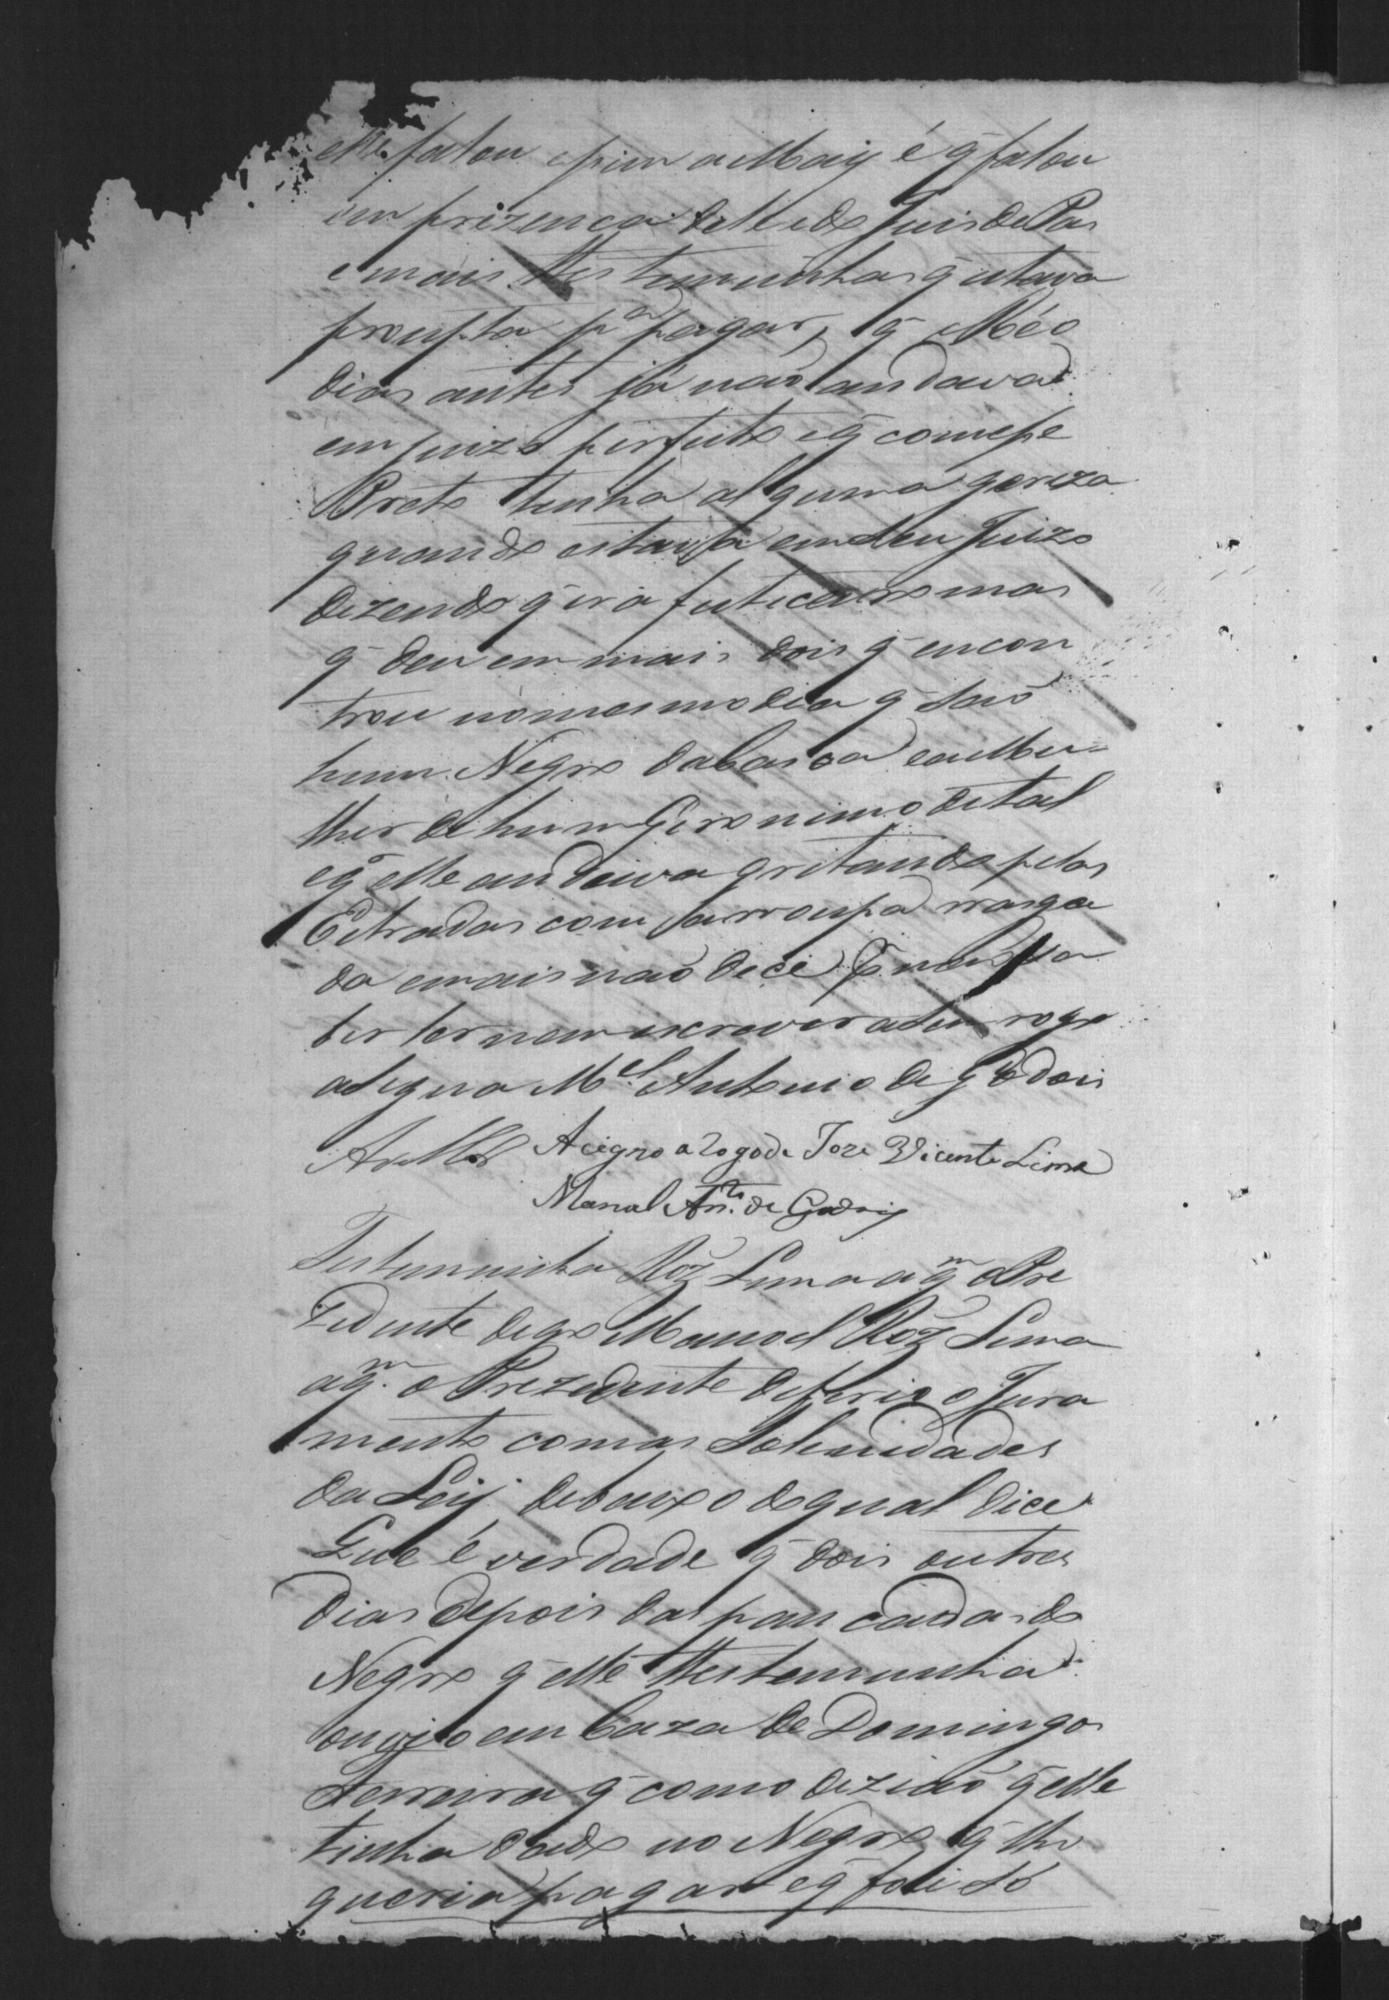 elle falou e sim a Maiy é q̃ falou
em prizença delle do Juis de Pas
e mais Testeminhas q̃ estava
proupta p.ª pagar, q̃ o Réo
dias antes já naõ andava
em juizo perfeito e q̃ com esse
Preto tinha alguma geriza
quando estava em seu Juizo
dizendo q̃ era feticeiro mas
q̃ deu em mais dois q̃ encon
trou no mesmo dia q̃ saõ
hum Negro da barca e a Mu=
lher de hum Geronimo de tal
e q̃ elle andava gritando pelas
Estradas com a rroupa rrasga
da e mais naõ dice E naõ sa
ber ler nem escrever a seu rogo
asigna M.el Antonio de Godois
Acigno a Rogo de Joze Vicente Lima
Manoel An.to de Godoiy
Testeminha Roz Lima a q.m o Pre
zidente digo Manoel Roz Lima
a q.m o Prezidente deferio o Jura
mento com as Solenidades
da Ley debaixo do qual dice
Que é verdade q̃ dois ou tres
dias depois das pancadas do
Negro q̃ elle Testeminha
ouvio em Caza de Domingos
Ferreira q̃ como diziaõ q̃ elle
tinha dado no Negro q̃ lhe
queria pagar e q̃ foi só